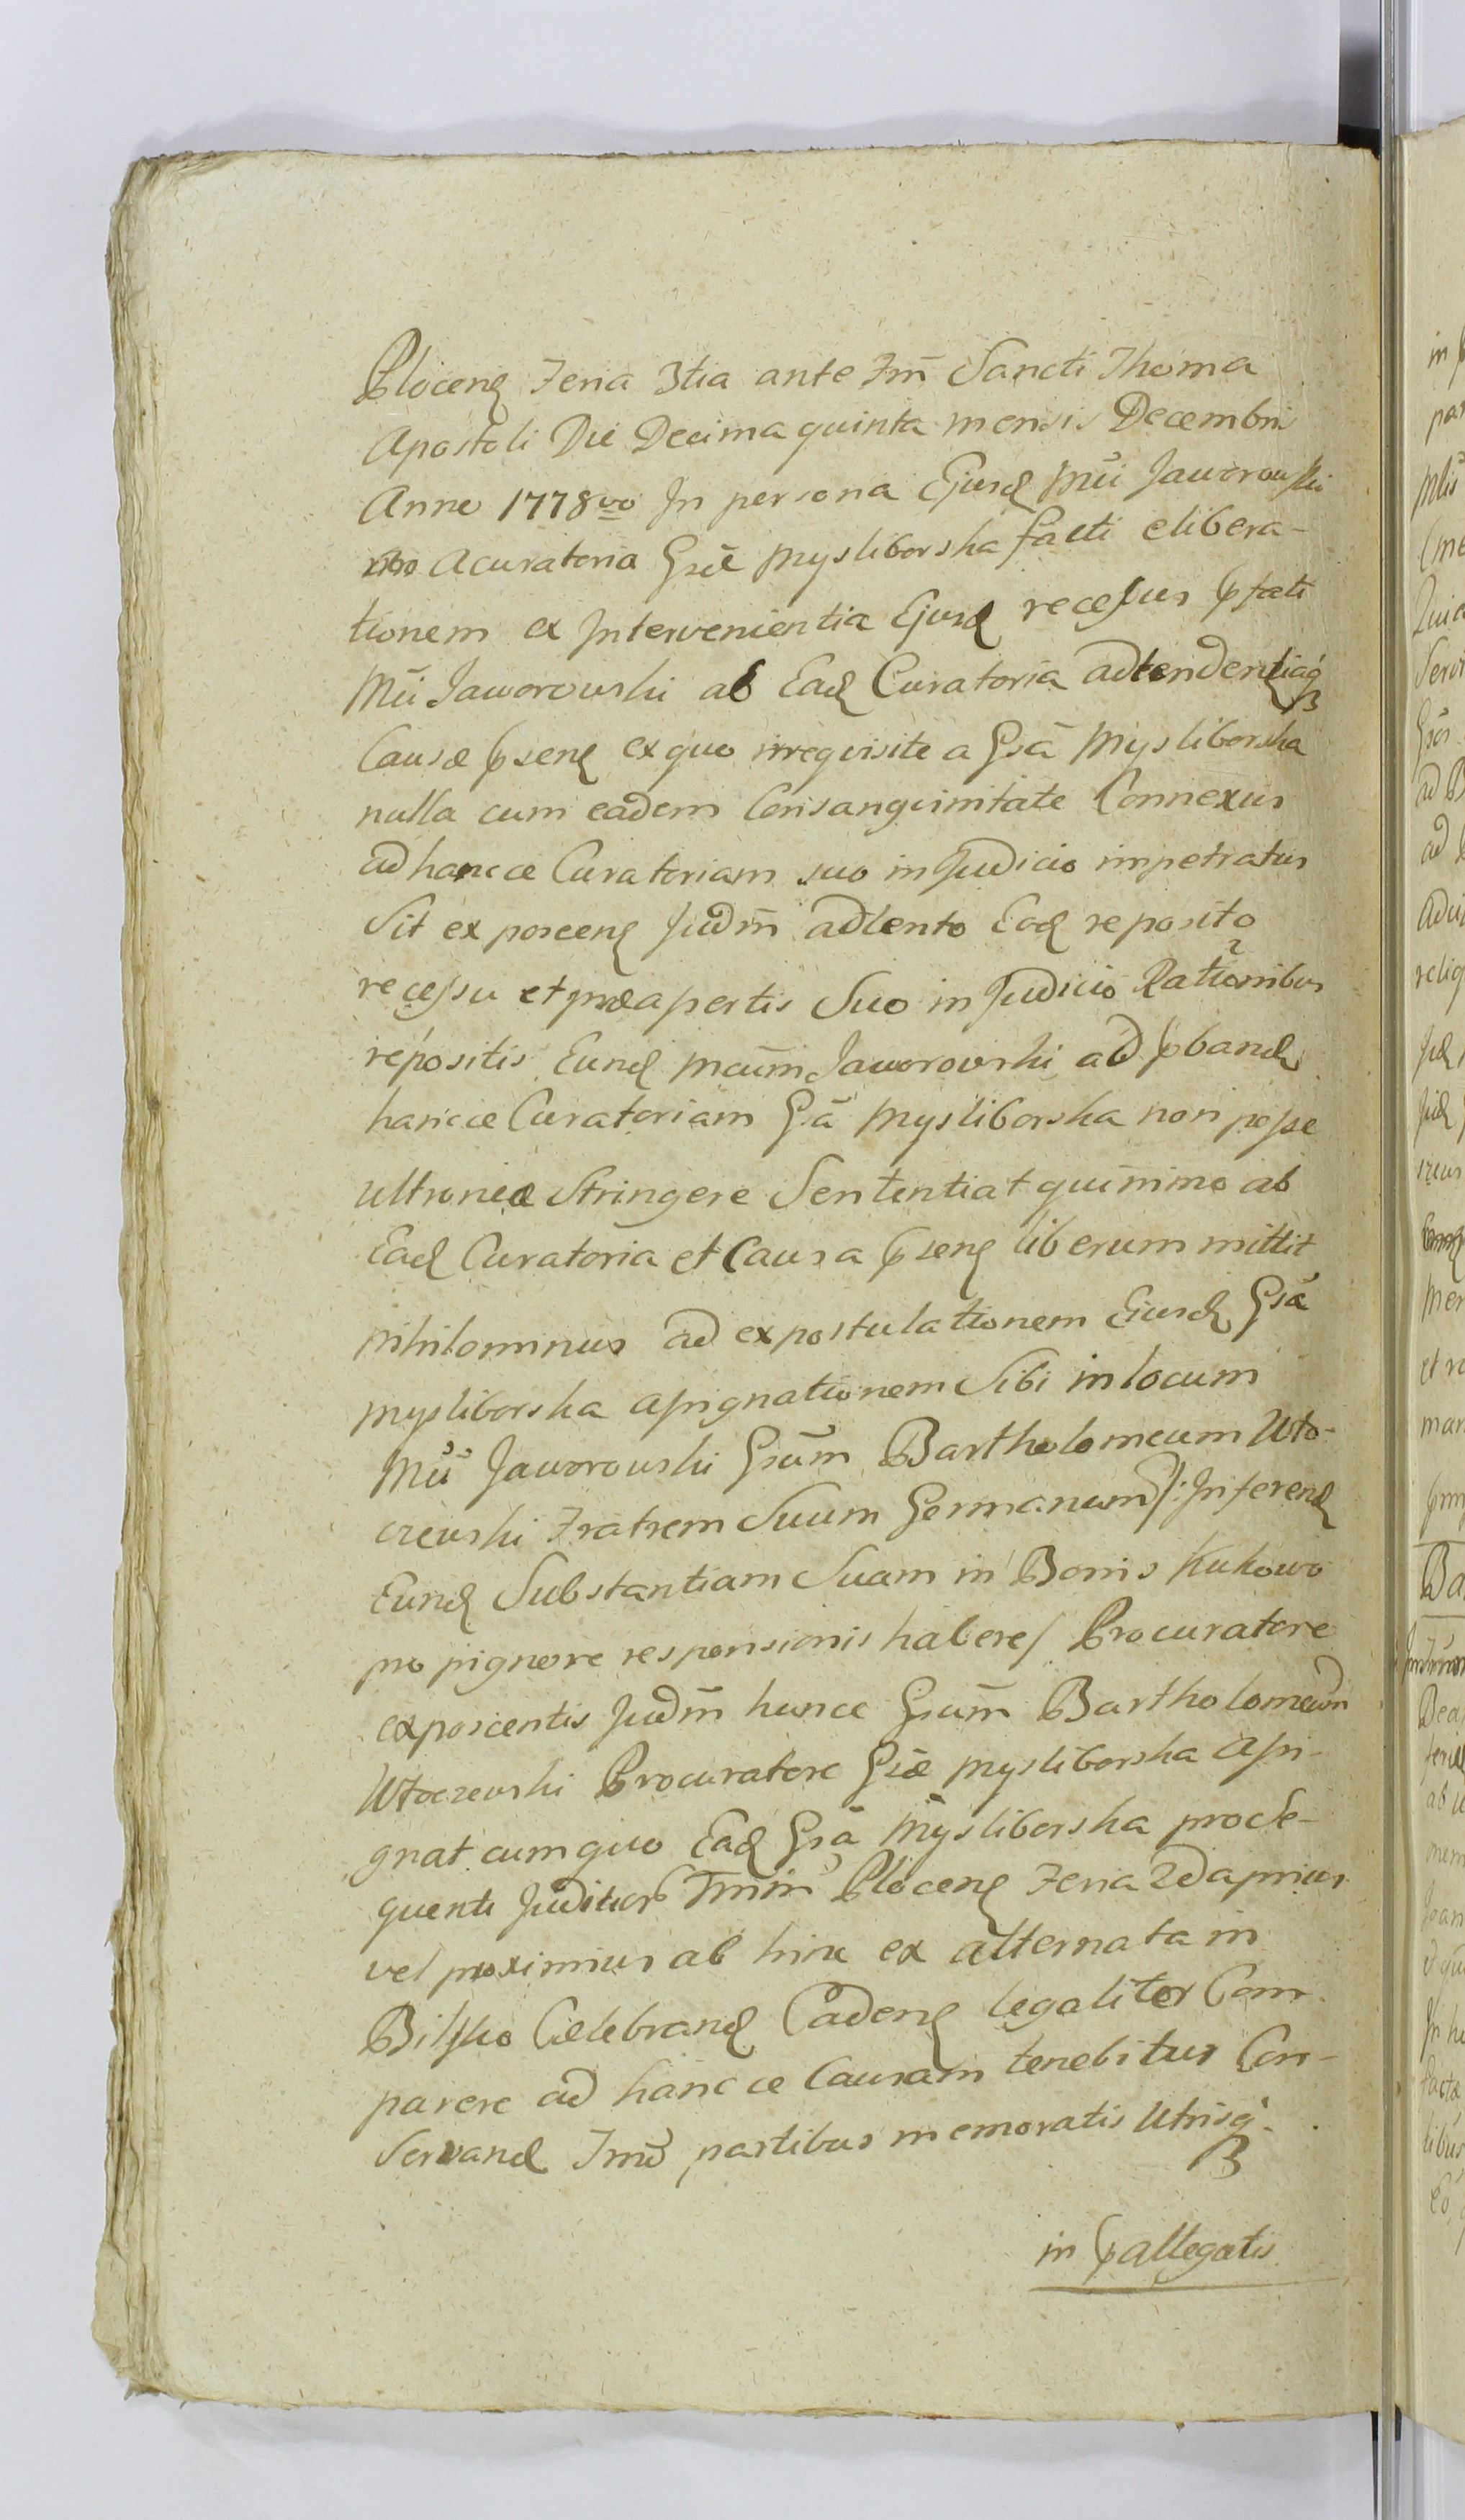 Plocen Feria 3tia ante Fm̄ Sancti Thoma
Apostoli Die Decima quinta mensis Decembris
Anno 1778vo In persona Ejusd Mci Jaworowski
a Curatoria Gsæ Mysliborska facti elibera-
tionem ex Intervenientia Ejusd recessus pfati
Mci Jaworowski ab Ead Curatoria adtendentiaq
Causæ psen ex quo irrequisite a Gsa Mysliborska
nulla cum eadem Consanguinitate Connexus
ad hancce Curatoriam suo in Judicio impetratus
Sit exposcen Judm̄ adtento Eod reposito
recessu et præapertis Suo in Judicio Rationibus
repositis Eund Mcum Jaworowski ad pband
hancce Curatoriam Gsa Mysliborska non posse
ultronee Stringere Sententiat quinimo ab
Ead Curatoria et Causa psen liberum mittit
nihilominus ad expostulationem Ejusd Gsa
Mysliborska assignationem Sibi in locum
Mci Jaworowski Gsum Bartholomeum Wło-
czewski Fratrem Suum Germanum /: Inferend
Eund Substantiam Suam in Bonis Kukowo
pro pignore responsionis habere/ Procuratore
exposcentis Judm̄ hunce Gsum Bartholomeum
Włoczewski Procuratore Gsæ Mysliborska assi-
gnat cum quo Ead Gsa Mysliborska prose-
quenti Juditur Tmin Plocen Feria 2da prius
vel proximius ab hinc ex alternata in
Bilsko Celebrand Caden legaliter Com-
parere ad hancce Causam tenebitur Con-
servand Tmo partibus memoratis Utrisq
in pallegatis